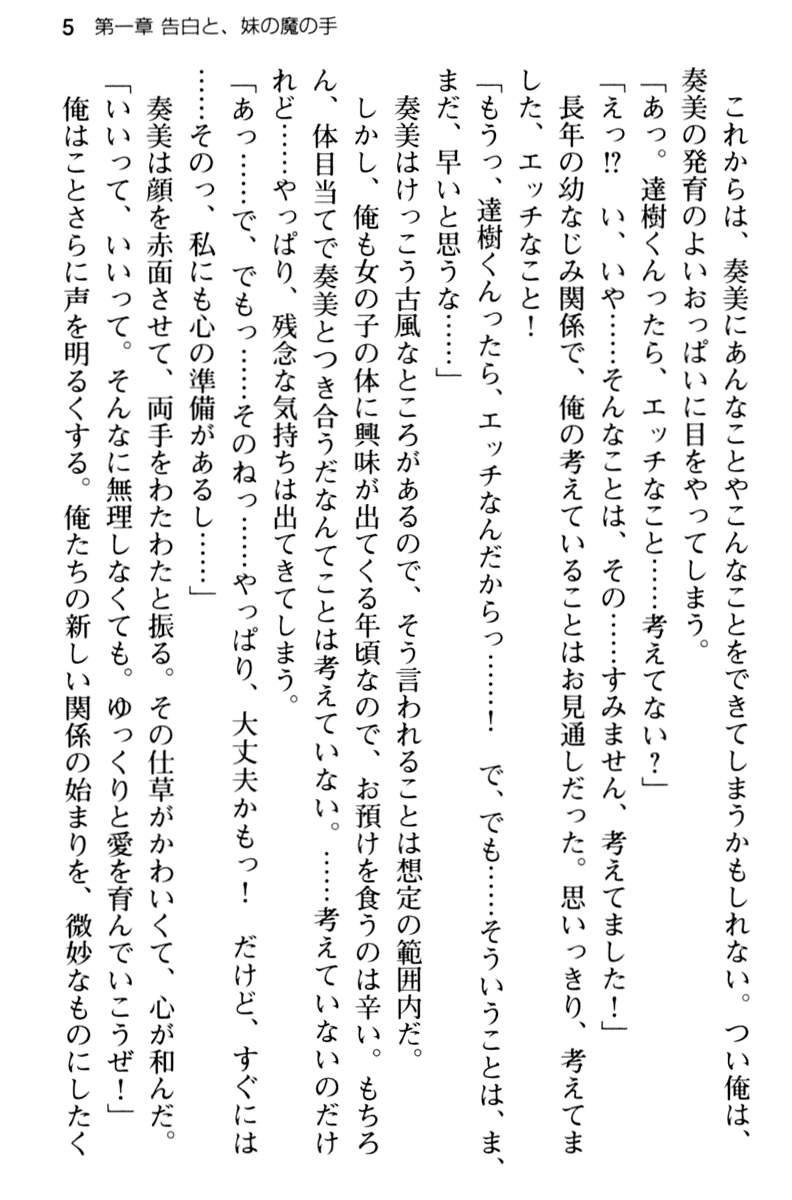 5 第一章 告白と、妹の魔の手
これからは、奏美にあんなことやこんなことをできてしまうかもしれない。つい俺は、
奏美の発育のよいおっぱいに目をやってしまう。
「あっ。達樹くんったら、エッチなこと……考えてない?」
「えっ!? い、いや……そんなことは、その……すみません、考えてました!」
長年の幼なじみ関係で、俺の考えていることはお見通しだった。思いっきり、考えてま
した、エッチなこと!
「もうっ、達樹くんったら、エッチなんだからっ……! で、でも……そういうことは、ま、
まだ、早いと思うな……」
奏美はけっこう古風なところがあるので、そう言われることは想定の範囲内だ。
しかし、俺も女の子の体に興味が出てくる年頃なので、お預けを食うのは辛い。もちろ
ん、体目当てで奏美とつき合うだなんてことは考えていない。……考えていないのだけ
れど……やっぱり、残念な気持ちは出てきてしまう。
「あっ……で、でもっ……そのねっ……やっぱり、大丈夫かもっ! だけど、すぐには
……そのっ、私にも心の準備があるし……」
奏美は顔を赤面させて、両手をわたわたと振る。その仕草がかわいくて、心が和んだ。
「いいって、いいって。そんなに無理しなくても。ゆっくりと愛を育んでいこうぜ!」
俺はことさらに声を明るくする。俺たちの新しい関係の始まりを、微妙なものにしたく